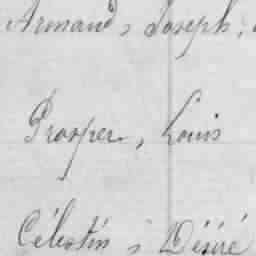 Armand, Joseph,
Prosper, Louis
Célestin, Désiré